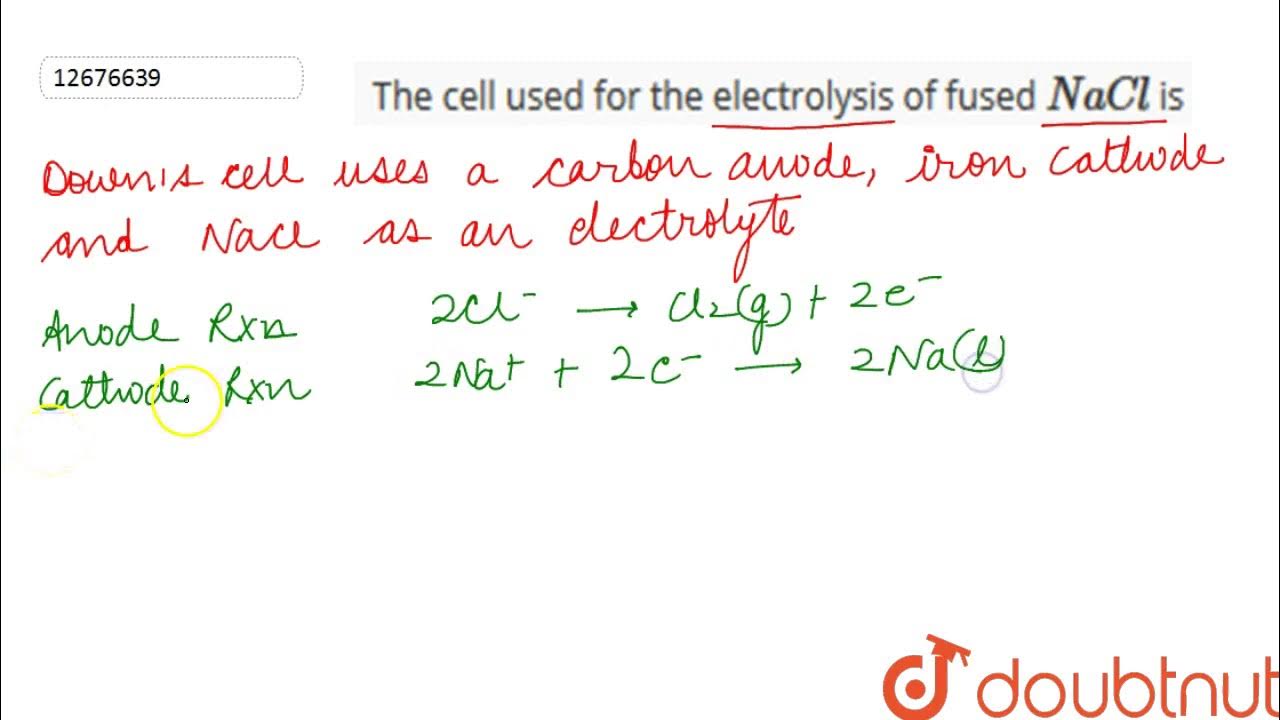 12676639
The cell used for the electrolysis of fused NaCl is
Down's cell uses a carbon anode, iron cathode
and NaCl as an electrolyte
Anode Rxn 2Cl⁻ → Cl₂(g) + 2e⁻
Cathode Rxn 2Na⁺ + 2e⁻ → 2Na(l)
doubtnut